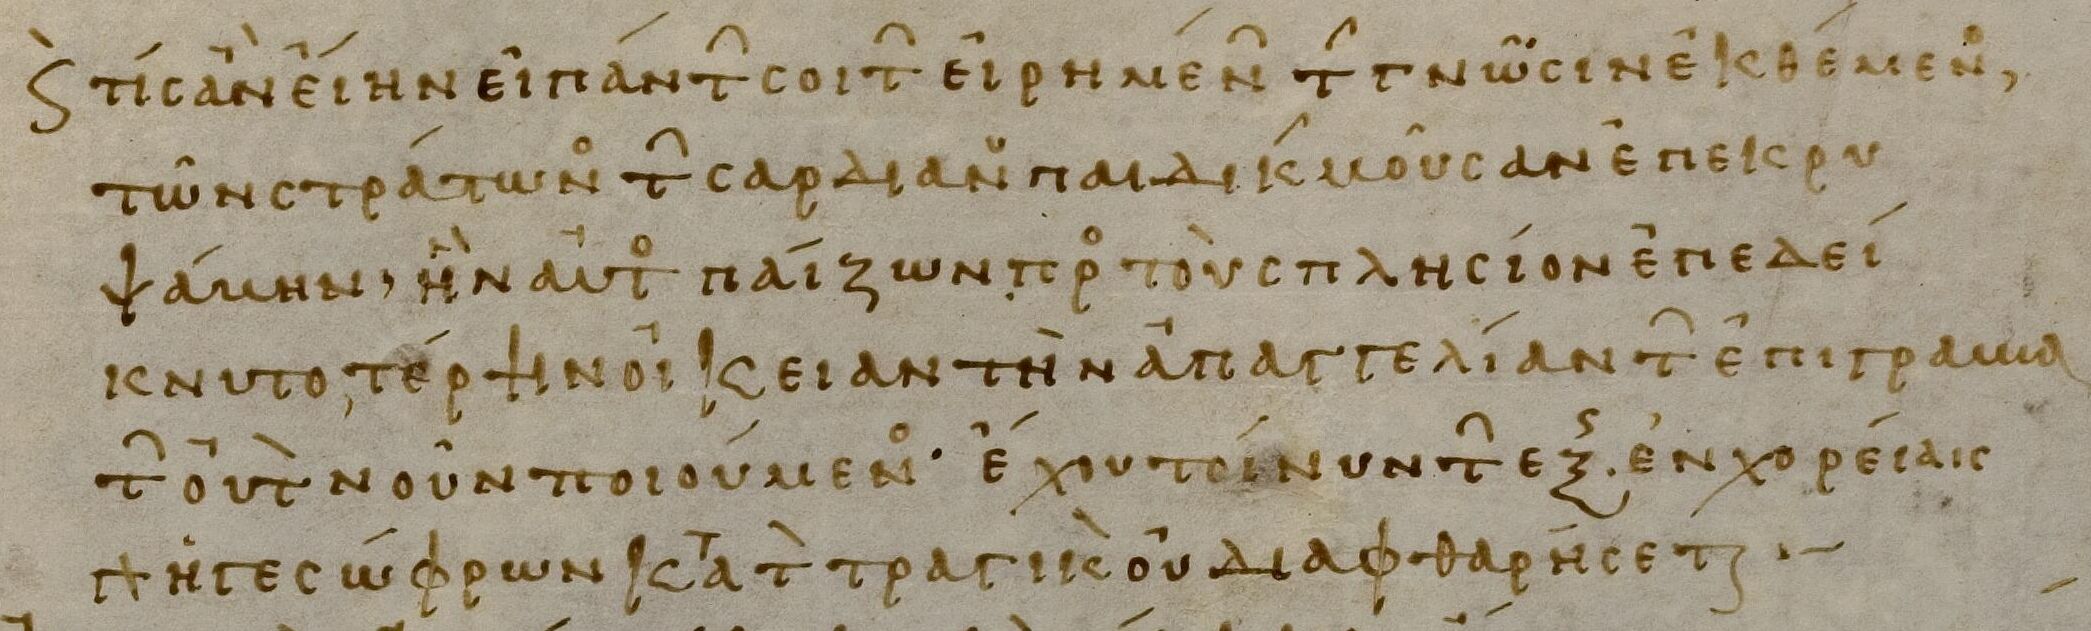 ϛ τίς ἂν εἴην εἰ πάντ σοι τ εἰρημέν τ γνῶσιν ἐκθέμεν,
τῶν στράτων τ σαρδιαν παιδικ μοῦσαν ἐπεκρυ
ψάμην, ἣν αὐτ παίζων πρ τοὺς πλησίον ἐπεδεί
κνυτο, τέρψιν οἰκείαν τὴν ἀπαγγελίαν τ ἐπιγραμμα
τ οὐ τ νοῦν ποιούμεν· ἔχου τοίνυν τ ἑξ. ἐν χορείαις
γ ἥ γε σώφρων κατὰ τ τραγικ οὐ διαφθαρήσεται